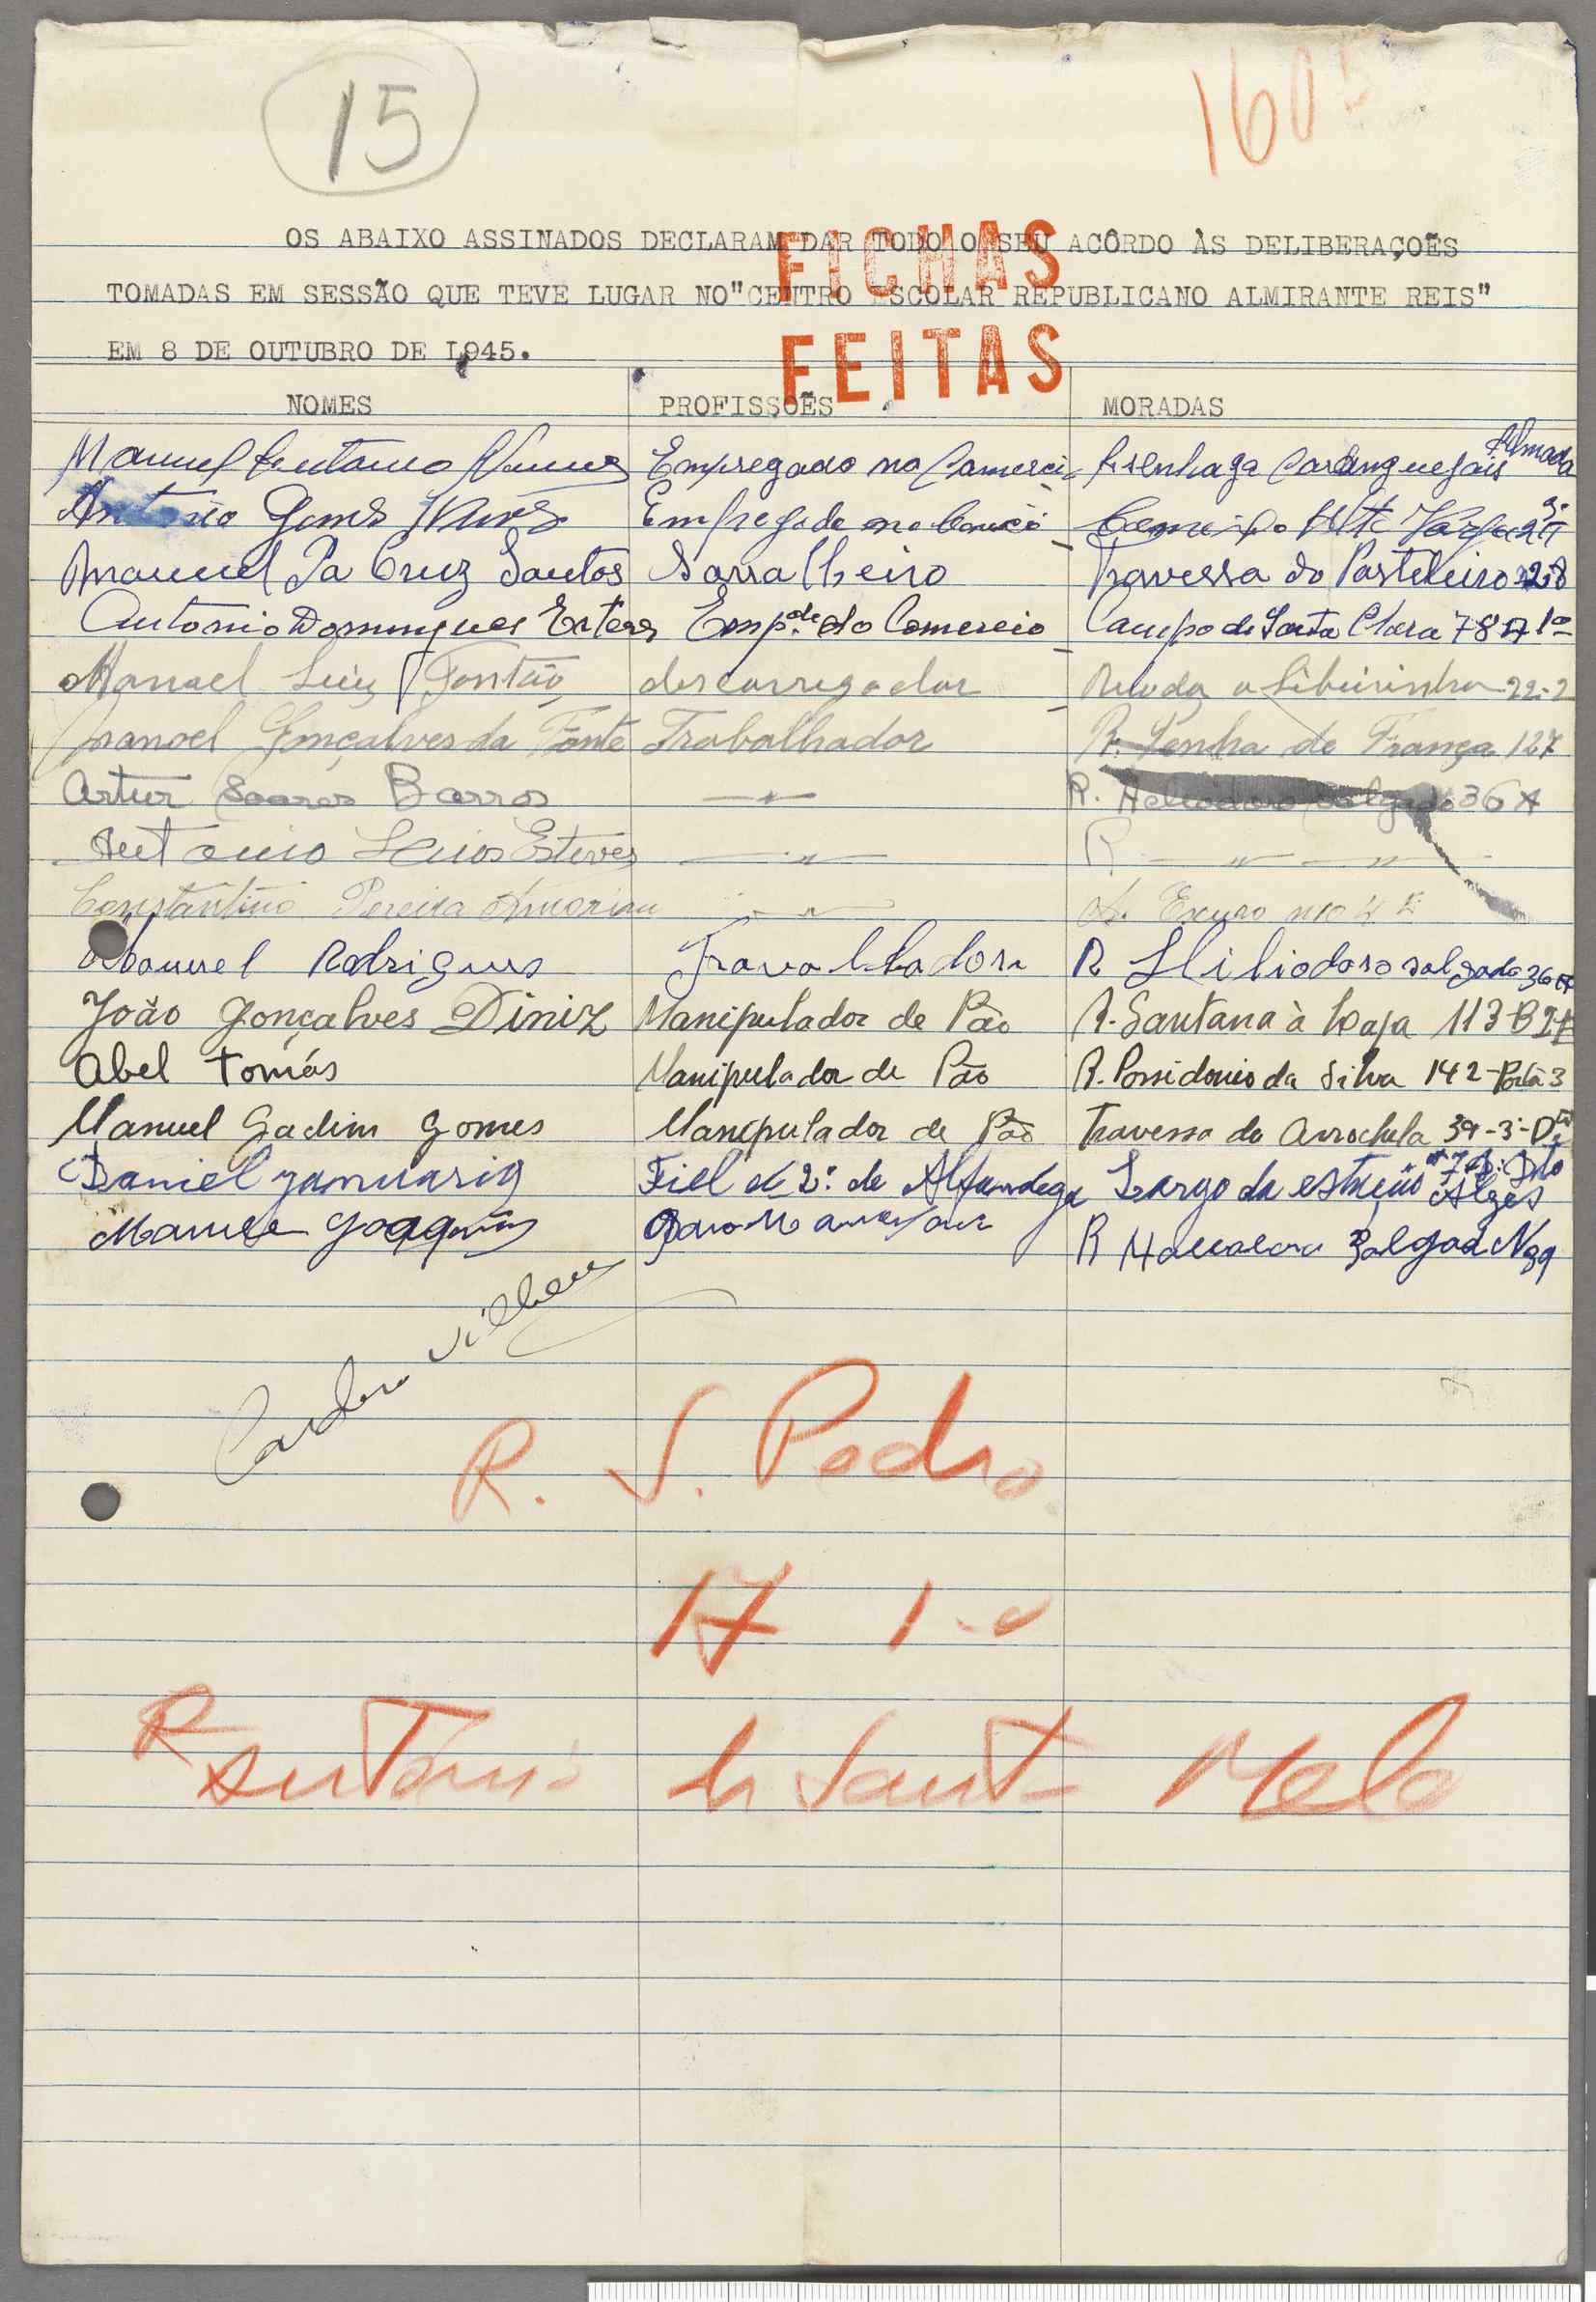 15
160
OS ABAIXO ASSINADOS DECLARAM DAR TODO O SEU ACÔRDO ÀS DELIBERAÇOẼS
TOMADAS EM SESSÃO QUE TEVE LUGAR NO "CENTRO ESCOLAR REPUBLICANO ALMIRANTE REIS"
EM 8 DE OUTUBRO DE I945.
FICHAS
FEITAS
NOMES PROFISSOẼS MORADAS
Manuel Nunes Empregado no Comercio Almada
António Gomes Empregado no
Manuel Da Cruz Santos Sarralheiro Travessa do Pasteleiro 28
Antonio Domingues Esteves Emp.de do Comercio Campo de Santa Clara 78 1º
Manoel Luiz Fontão descarregador 22-2
Manoel Gonçalves da Fonte Trabalhador R. Penha de França 127
Artur Soares Barros —"— R. Heliodoro Salgado 36 A
Antonio Esteves —"— R —"— —"—
Constantino Pereira Amorim —"—
Manuel Rodrigues Travalhador R Hiliodoro Salgado 36 A
João Gonçalves Diniz Manipulador de Pão R. Santana à Lapa 113-B
Abel Tomás Manipulador de Pão R. Possidonio da Silva 142-Porta 3
Manuel Gadim Gomes Manipulador de Pão Travessa do 39-3º-D
Daniel Januario Fiel de 2ª de Alfandega Largo da Algés
Manuel Joaquim R Salgad N 39
R. S. Pedro
17 1-o
R António Melo